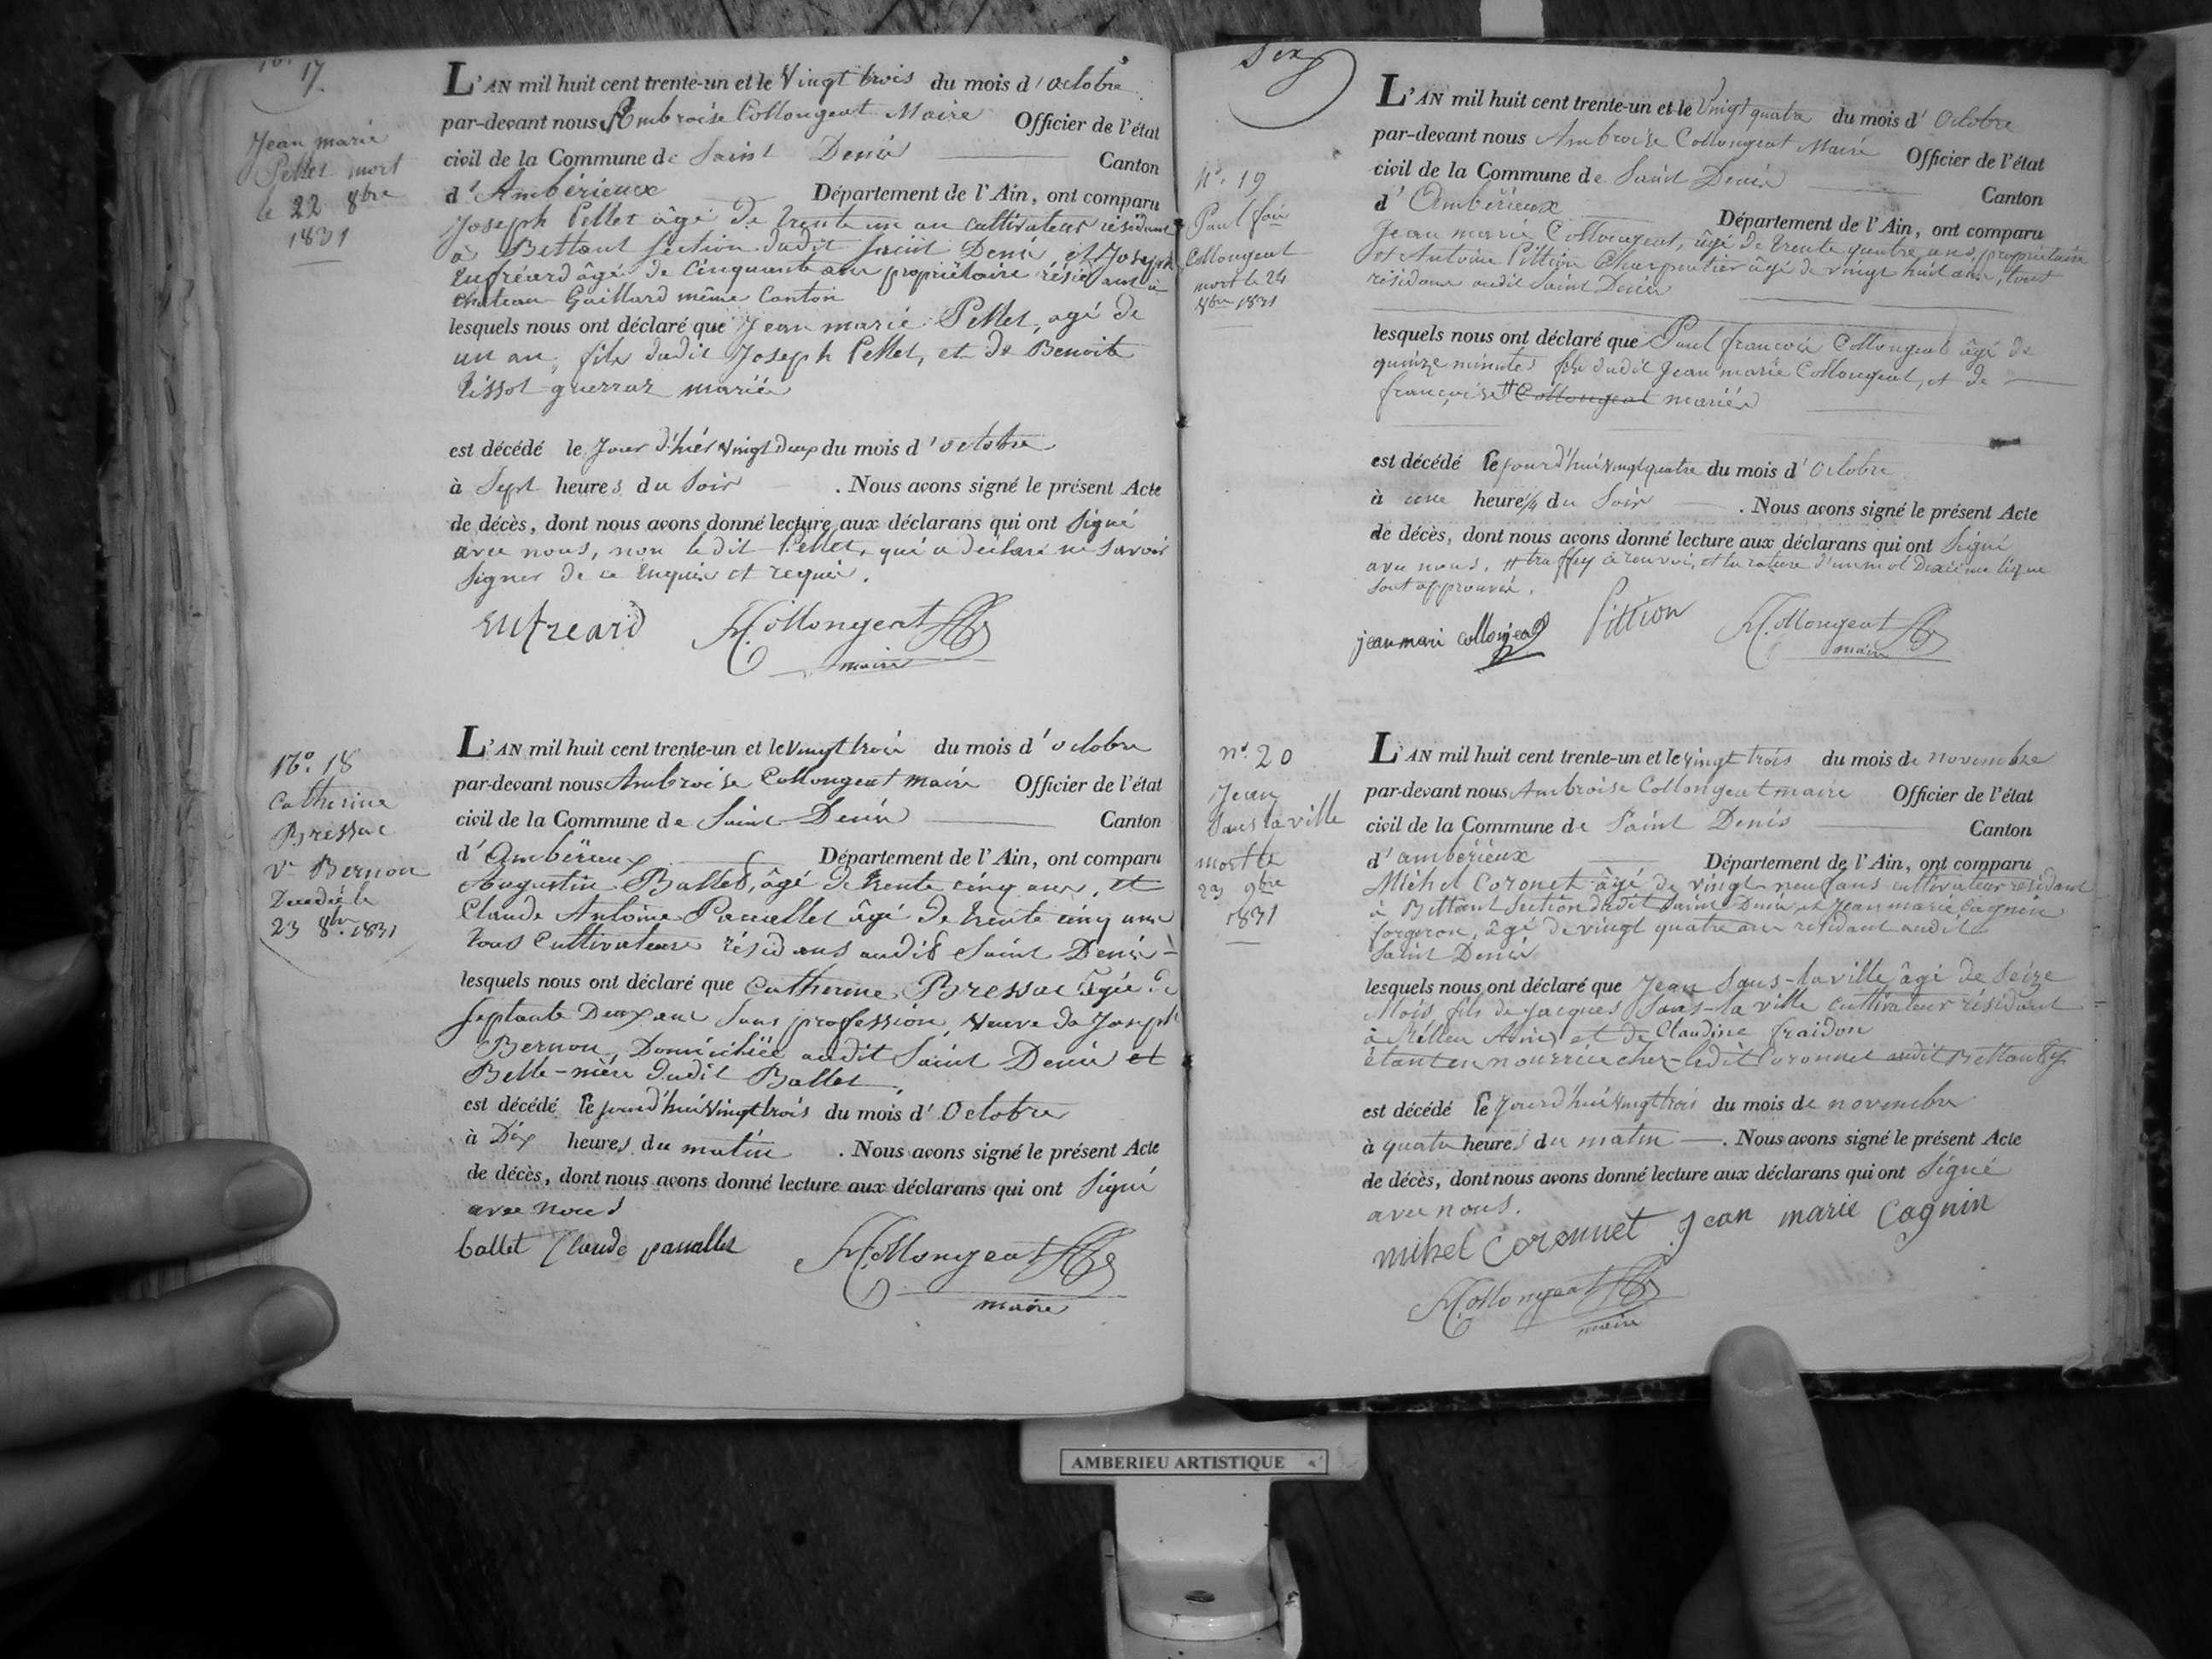 17.
Jean marie
Pellet mort
le 22 8bre
1831
L'AN mil huit cent trente-un et le Vingt trois du mois d'octobre
par-devant nous Ambroise Collongeat Maire Officier de l'état
civil de la Commune de Saint Denis Canton
d'Ambérieux Département de l'Ain, ont comparu
Joseph Pellet âgé de trente un an cultivateur résidant
à Bettant section dudit Saint Denis et Joseph
Enfréard âgé de cinquante ans propriétaire résidant à
chateau Gaillard même Canton
lesquels nous ont déclaré que Jean marie Pellet, agé de
un an, fils dudit Joseph Pellet, et de Benoite
Tissot-guerraz mariés
est décédé le Jour d'hiér vingt deux du mois d'octobre
à Sept heures du Soir . Nous avons signé le présent Acte
de décès, dont nous avons donné lecture aux déclarans qui ont Signé
avec nous, non ledit Pellet, qui a déclaré ne savoir
signer de ce enquis et requis.
enfreard A. Collongeat
maire
No. 18
Catherine
Bressac
Ve Bernou
Decedée le
23 8bre 1831
L'AN mil huit cent trente-un et le vingt trois du mois d'octobre
par-devant nous Ambroise Collongeat maire Officier de l'état
civil de la Commune de Saint Denis Canton
d'Ambérieux Département de l'Ain, ont comparu
Augustin Ballet, âgé de trente cinq ans, et
Claude Antoine Pauallet âgé de trente cinq ans
tous Cultivateurs résidans audit Saint Denis
lesquels nous ont déclaré que Catherine Bressac âgée de
septante Deux ans sans profession, Veuve de Joseph
Bernou, Domiciliée audit Saint Denis et
Belle-mère dudit Ballet
est décédé le jourd'hui vingt trois du mois d'Octobre
à Dix heures du matin . Nous avons signé le présent Acte
de décès, dont nous avons donné lecture aux déclarans qui ont Signé
avec nous
ballet Claude pauallet A. Collongeat
maire
Six
No. 19
Paul fois
Collongeat
mort le 24
8bre 1831
L'AN mil huit cent trente-un et le Vingt quatre du mois d'Octobre
par-devant nous Ambroise Collongeat Maire Officier de l'état
civil de la Commune de Saint Denis Canton
d'Ambérieux Département de l'Ain, ont comparu
Jean marie Collongeat, âgé de trente quatre ans, propriétaire
et Antoine Pittion Charpentier âgé de vingt huit ans, tous
résidans audit Saint Denis
lesquels nous ont déclaré que Paul françois Collongeat âgé de
quinze minutes fils dudit Jean marie Collongeat, et de
françoise # Collongeat mariés
est décédé le jourd'hui vingt quatre du mois d'Octobre
à une heure 1/4 du Soir . Nous avons signé le présent Acte
de décès, dont nous avons donné lecture aux déclarans qui ont Signé
avec nous. # traffey à renvoi, et la rature d'un mot dixième ligne
sont approuvés.
jean mari collonjeat Pittion A. Collongeat
maire
no. 20
Jean
Sans la ville
mort le
23 9bre
1831
L'AN mil huit cent trente-un et le vingt trois du mois de novembre
par-devant nous Ambroise Collongeat maire Officier de l'état
civil de la Commune de Saint Denis Canton
d'ambérieux Département de l'Ain, ont comparu
Michel Coronet âgé de vingt neuf ans cultivateur résidant
à Bettant Section dudit Saint Denis et Jean marie Cagnin
forgeron, âgé de vingt quatre ans résidant audit
Saint Denis
lesquels nous ont déclaré que Jean Sans-la ville âgé de Seize
Mois fils de jacques Sans-la ville cultivateur résidant
à et de Claudine fraidon
étant en nourrice chez ledit Coronnet audit Bettant
est décédé le jourd'hui vingt trois du mois de novembre
à quatre heures du matin . Nous avons signé le présent Acte
de décès, dont nous avons donné lecture aux déclarans qui ont Signé
avec nous.
mihel Coronnet Jean marie Cagnin
A. Collongeat
maire
AMBERIEU ARTISTIQUE